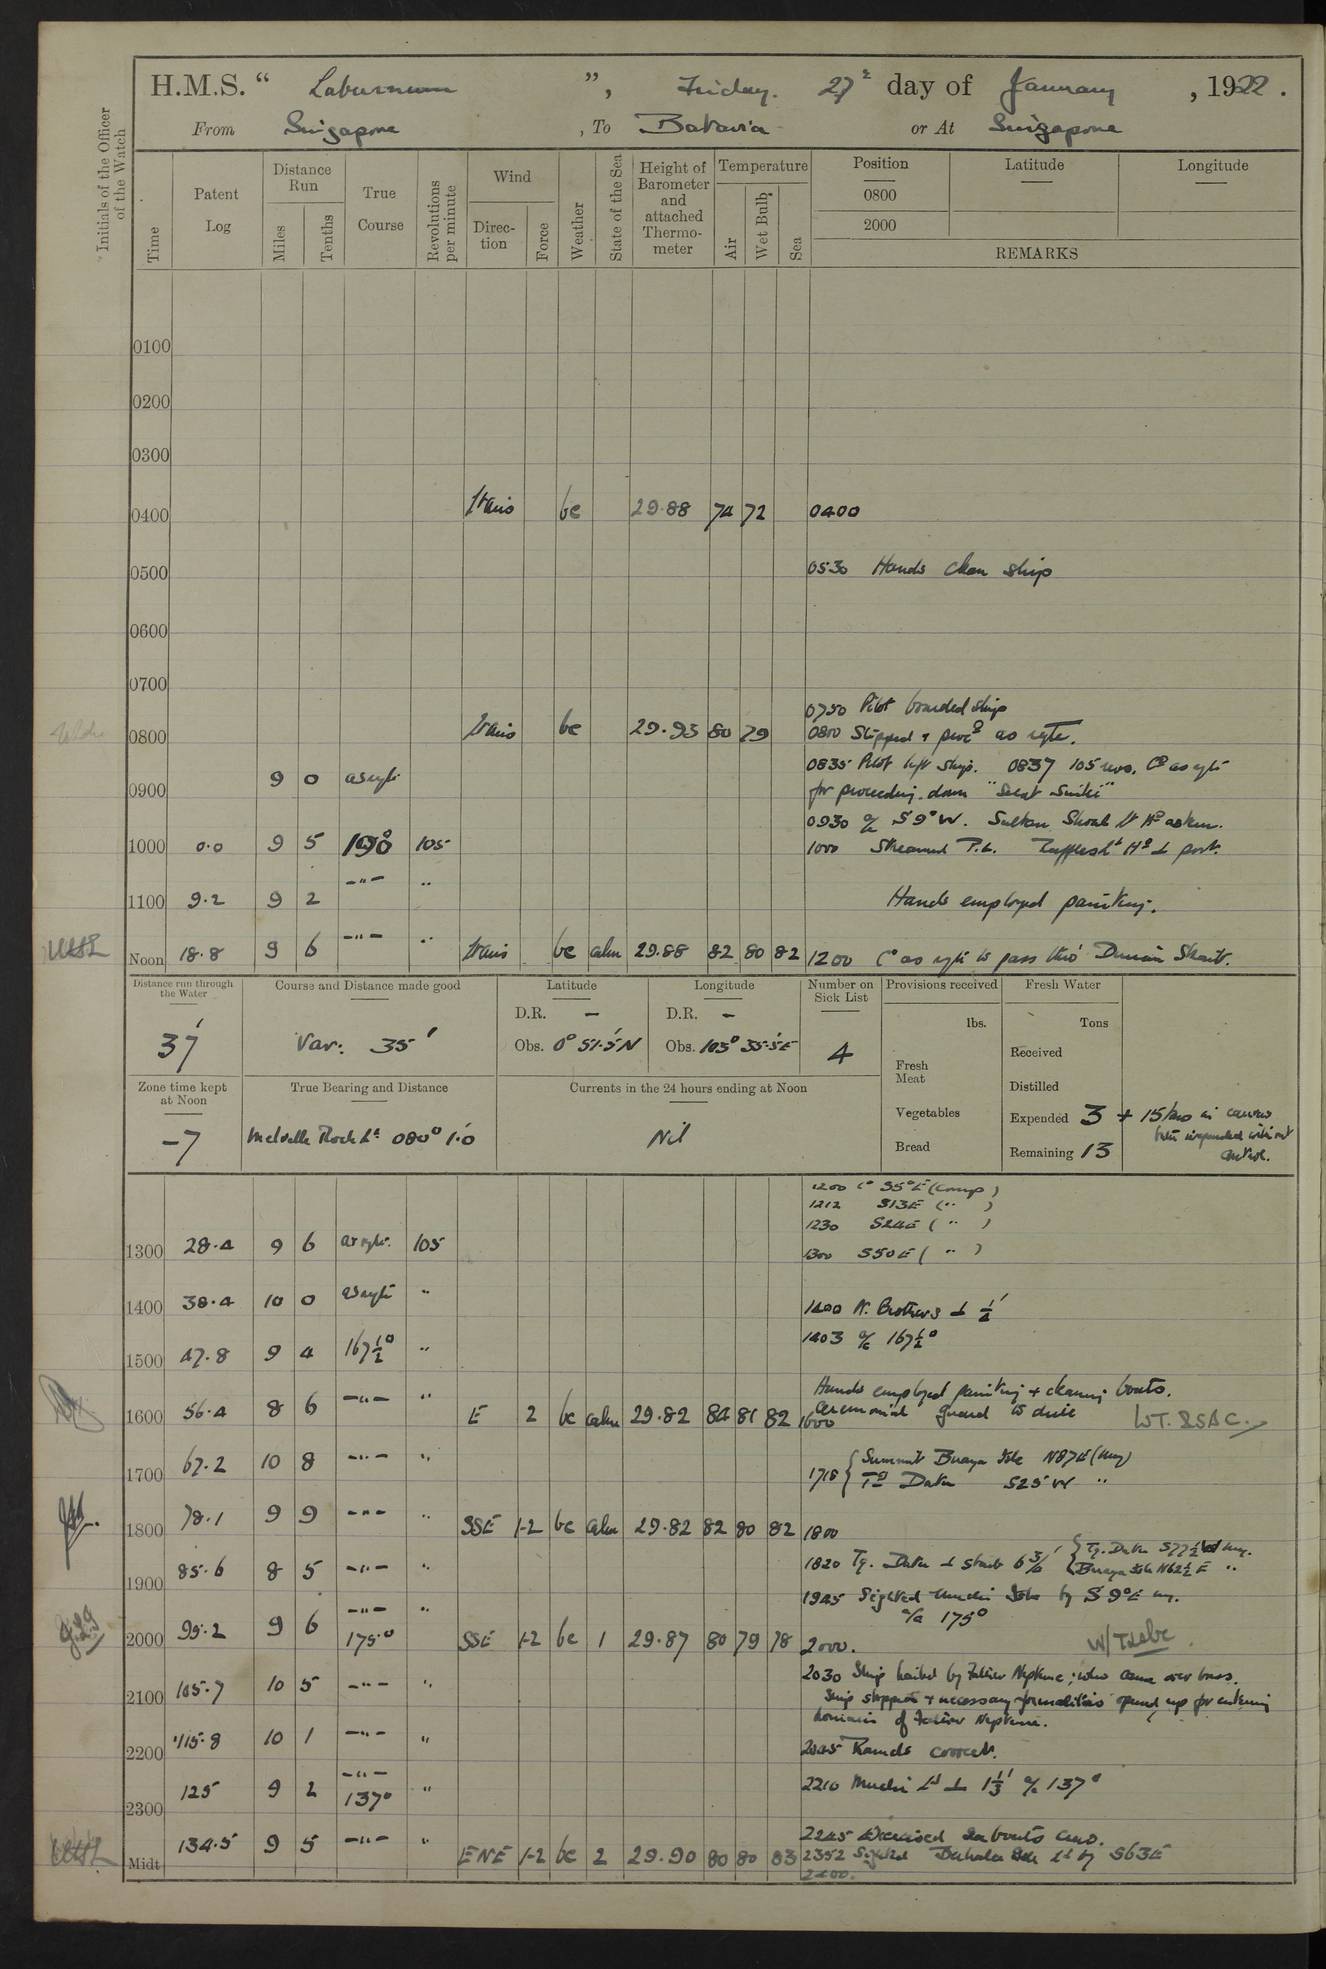 H.M.S. “ Laburnum ”, Friday. 27th day of January , 1922.
From Singapore , To Batavia or At Singapore
Initials of the Officer of the Watch
Time
Patent Log
Distance Run
Miles
Tenths
True Course
Revolutions per minute
Wind
Direction
Force
Weather
State of the Sea
Height of Barometer and attached Thermometer
Temperature
Air
Wet Bulb
Sea
Position
0800
2000
Latitude
Longitude
REMARKS
0100
0200
0300
0400 bc 29.88 74 72 0400
0500 0530 Hands clean ship
0600
0700
0750 Pilot boarded ship
0800 bc 29.93 80 79 0800 Slipped + procd as reqte.
0835 Pilot left ship. 0837 105 revs. Co as reqte
0900 9 0 as reqte for proceeding down "Selat Sinki"
0930 a/c S 9° W. Sultan Shoal Lt Ho astern.
1000 0.0 9 5 190° 105 1000 Streamed P.L. Raffles Lt Ho ⊥ port.
1100 9.2 9 2 -"- " Hands employed painting.
Noon 18.8 9 6 -"- " bc calm 29.88 82 80 82 1200 Co as reqte to pass thro' Durian Strait.
Distance run through the Water
37'
Course and Distance made good
Var: 35'
Latitude
D.R. –
Obs. 0° 51.5'N
Longitude
D.R. –
Obs. 103° 35.5'E
Number on Sick List
4
Provisions received
lbs.
Fresh Meat
Vegetables
Bread
Fresh Water
Tons
Received
Distilled
Expended 3 + 15
Remaining 13
Zone time kept at Noon
-7
True Bearing and Distance
Melville Rock Lt 080° 1.'0
Currents in the 24 hours ending at Noon
Nil
1200 Co S5°E (Comp)
1212 S13E ( " )
1230 S24E ( " )
1300 28.4 9 6 as reqte. 105 1300 S50E ( " )
1400 38.4 10 0 as reqte " 1400 N. Brothers ⊥ ½'
1403 a/c 167½°
1500 47.8 9 4 167½° "
Hands employed painting + cleaning boats.
Ceremonial guard to drill
1600 56.4 8 6 -"- " E 2 bc calm 29.82 84 81 82 1600
1700 67.2 10 8 -"- " 1718 { Summit Buaya Isle N87E (mag)
Tg Datu S25W "
1800 78.1 9 9 -"- " SSE 1-2 bc calm 29.82 82 80 82 1800
1820 Tg. Datu ⊥ starb { Tg. Datu S77½W mag.
Buaya Isle N62½E "
1900 85.6 8 5 -"- "
1945 Sighted Muchi Isle by S 9° E mg.
a/c 175°
2000 95.2 9 6 -"- 175° " SSE 1-2 bc 1 29.87 80 79 78 2000.
2030 Ship hailed by Father Neptune; who came over bows.
Ship stopped + necessary formalities opened up for entering
domain of Father Neptune.
2100 105.7 10 5 -"- "
2045 Rounds correct.
2200 115.8 10 1 -"- "
2210 Muchi Ld ⊥ 1⅓' a/c 137°
2300 125 9 2 -"- 137° "
2245 Exercised seaboats crew.
Midt 134.5 9 5 -"- " ENE 1-2 bc 2 29.90 80 80 83 2352 Sighted Isle Lt by S63E
2400.